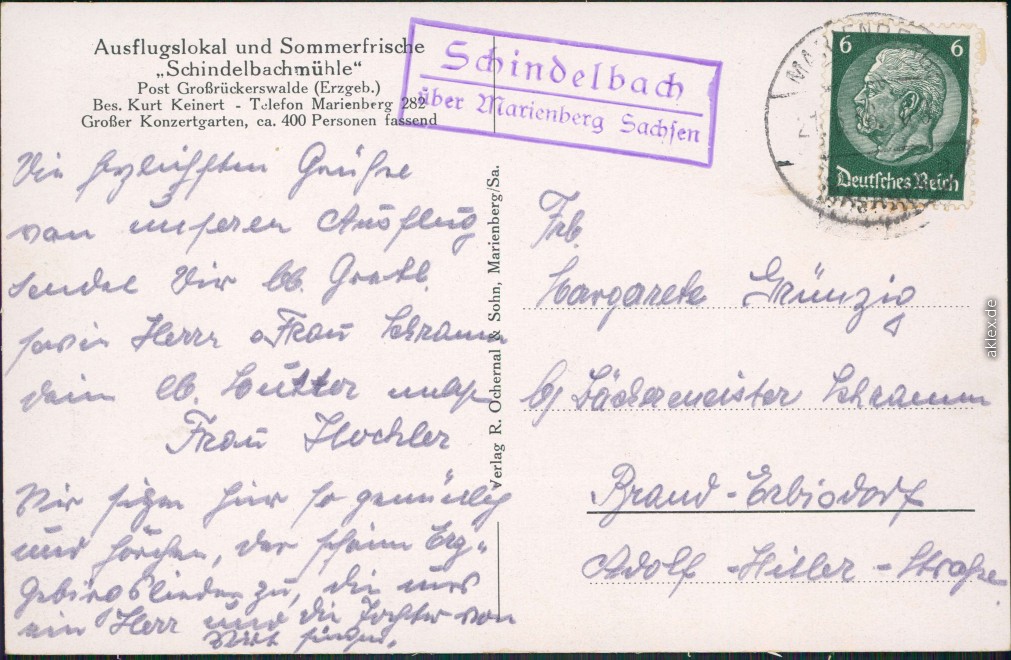 Ausflugslokal und Sommerfrische
„Schindelbachmühle“
Post Großrückerswalde (Erzgeb.)
Bes. Kurt Keinert - Telefon Marienberg 282
Großer Konzertgarten, ca. 400 Personen fassend
Schindelbach
über Marienberg Sachsen
6 6
Deutsches Reich
Die herzlichsten Grüße
von unserem Ausflug
sendet Dir lb. Gretl.
sowie Herrn u. Frau Schramm
dein lb. Mutter nebst
Frau
Wir sitzen hier so gemütlich
und horchen, der schönen Erz-
gebirgslieder zu, die uns
ein Herr und die Tochter von
Wirt singen.
Verlag R. Ochernal & Sohn, Marienberg/Sa.
Frl.
Margarete Grünzig
b/ Bäckermeister Schramm
Brand-Erbisdorf
Adolf-Hitler-Straße
aklex.de